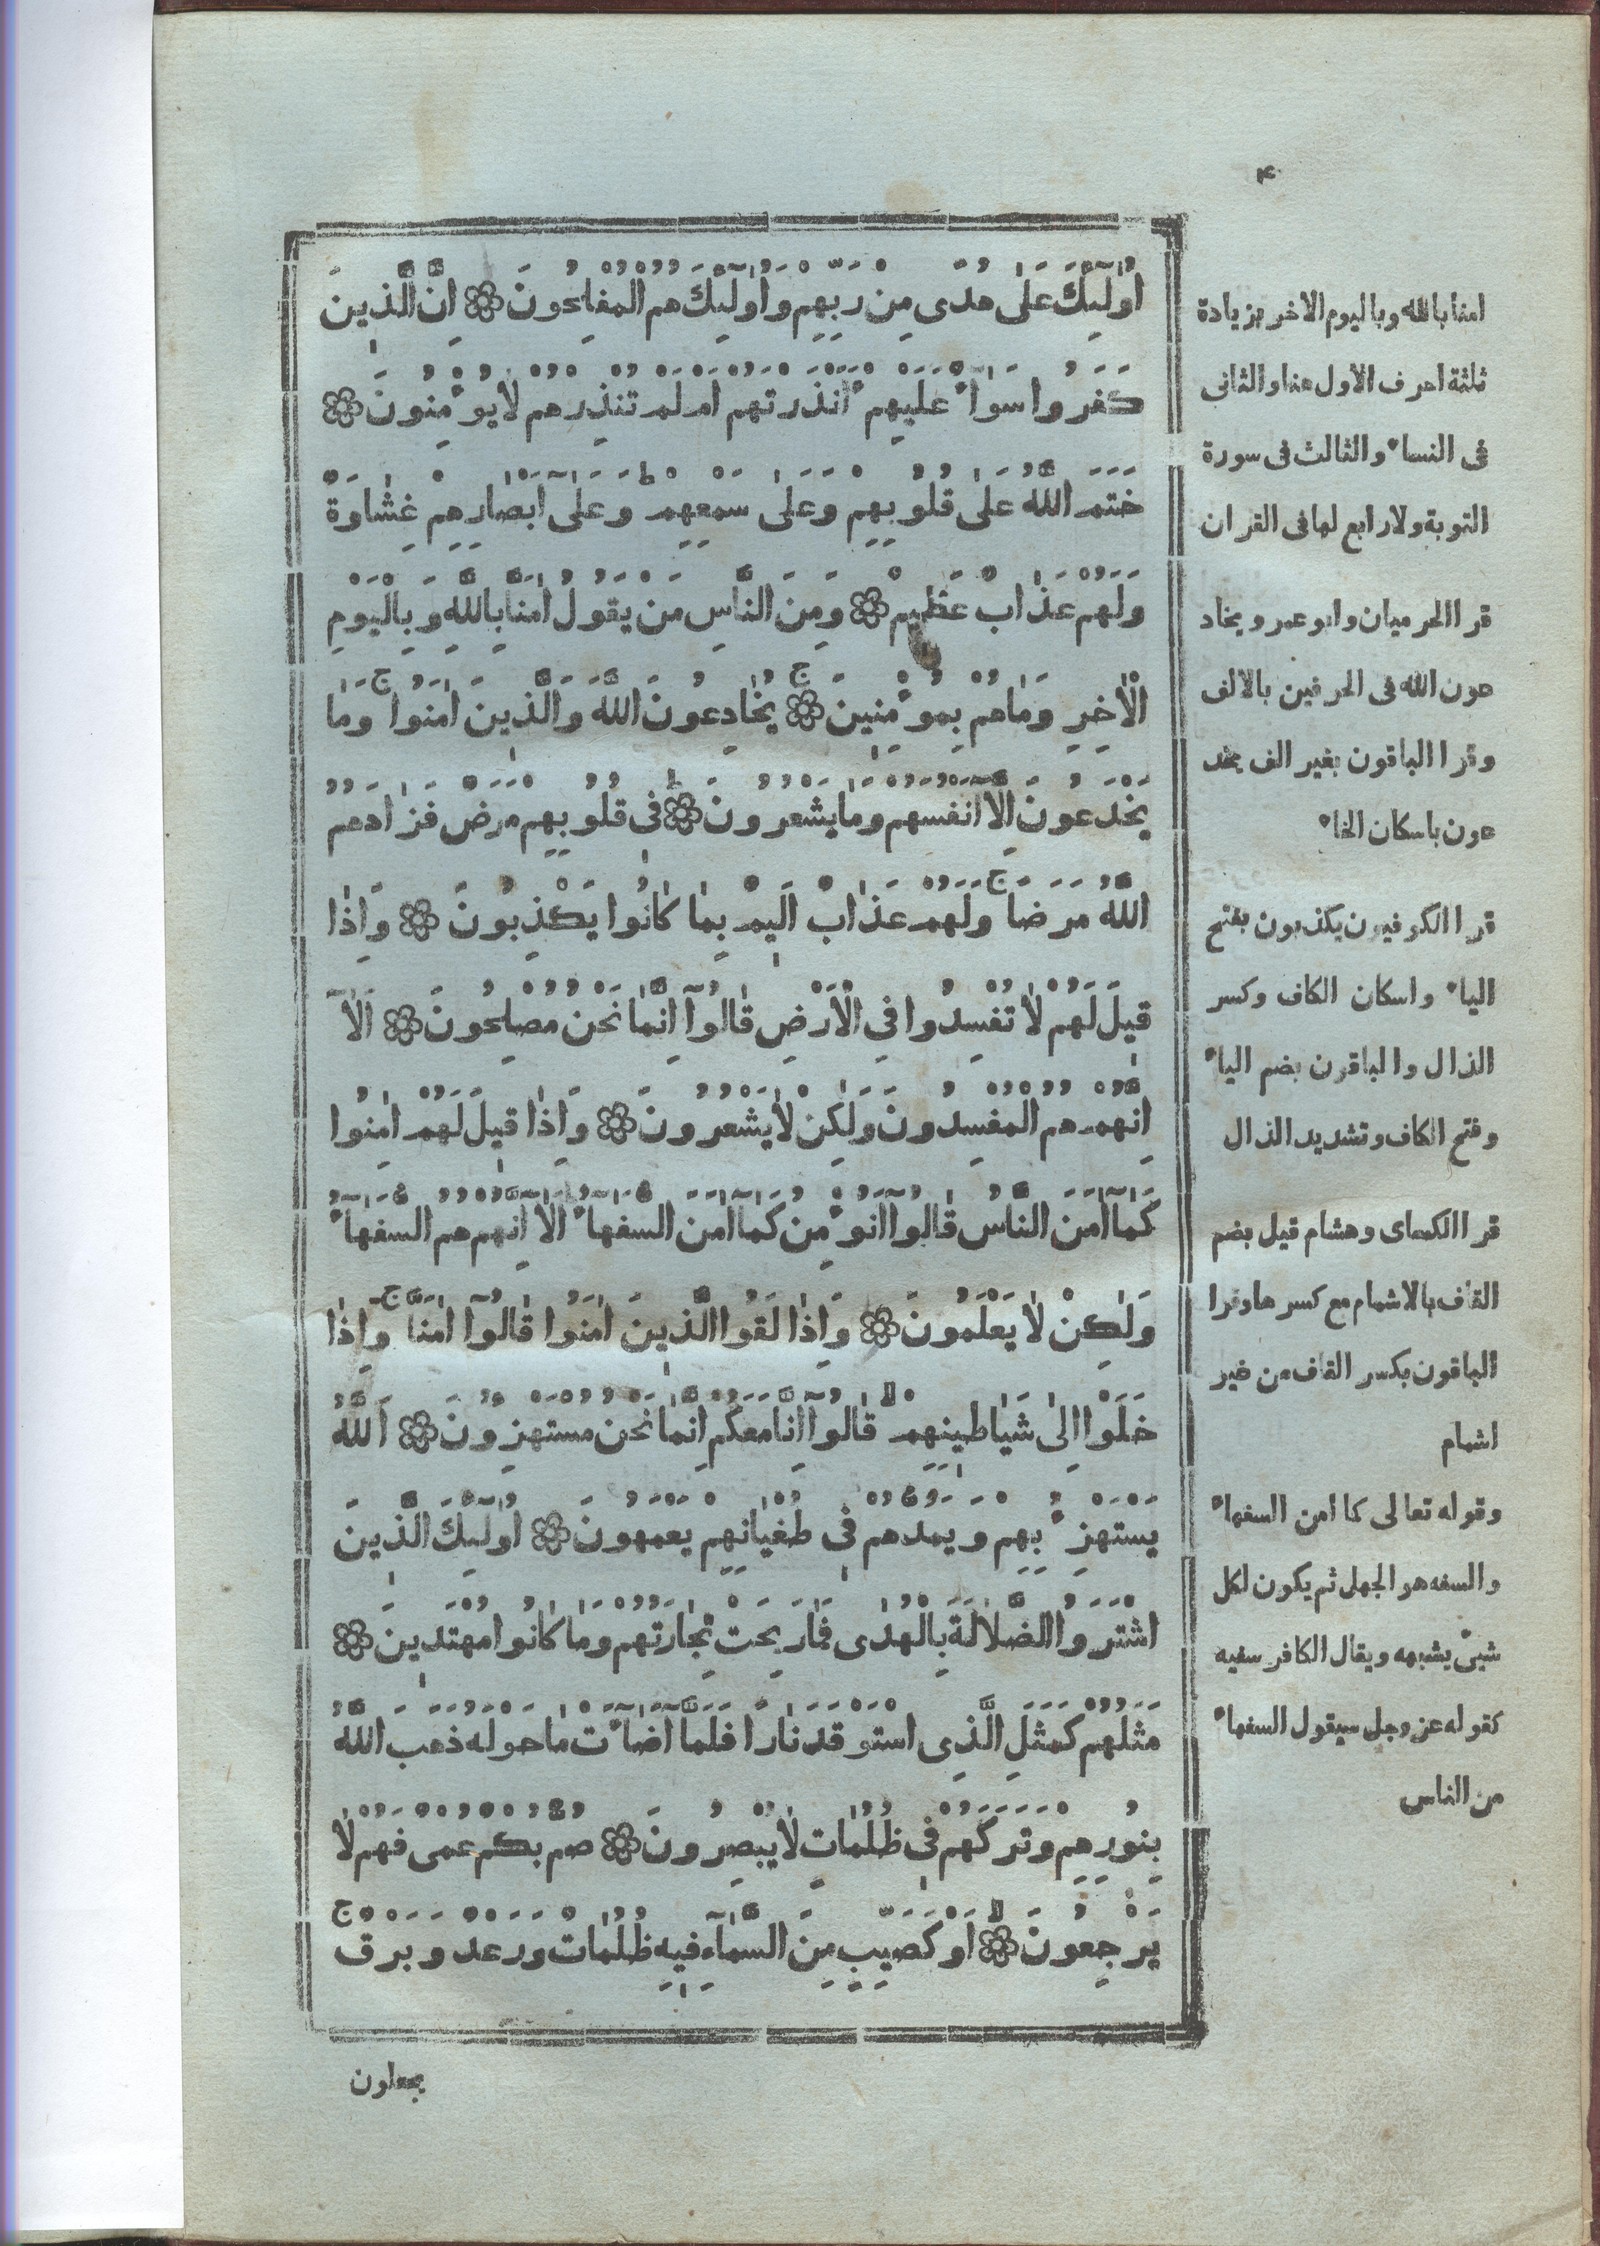 ٤
اُولٰٓئِكَ عَلٰى هُدًى مِنْ رَبِّهِمْ وَاُولٰٓئِكَ هُمُ الْمُفْلِحُونَ ۞ اِنَّ الَّذِينَ
كَفَرُوا سَوَآءٌ عَلَيْهِمْ ءَاَنْذَرْتَهُمْ اَمْ لَمْ تُنْذِرْهُمْ لَا يُؤْمِنُونَ ۞
خَتَمَ اللّٰهُ عَلٰى قُلُوبِهِمْ وَعَلٰى سَمْعِهِمْ ط وَعَلٰٓى اَبْصَارِهِمْ غِشَاوَةٌ
وَلَهُمْ عَذَابٌ عَظِيمٌ ۞ وَمِنَ النَّاسِ مَنْ يَقُولُ اٰمَنَّا بِاللّٰهِ وَبِالْيَوْمِ
الْاٰخِرِ وَمَا هُمْ بِمُؤْمِنِينَ ۞ ج يُخَادِعُونَ اللّٰهَ وَالَّذِينَ اٰمَنُوا ج وَمَا
يَخْدَعُونَ اِلَّآ اَنْفُسَهُمْ وَمَا يَشْعُرُونَ ۞ ط فِى قُلُوبِهِمْ مَرَضٌ فَزَادَهُمُ
اللّٰهُ مَرَضًا ج وَلَهُمْ عَذَابٌ اَلِيمٌ بِمَا كَانُوا يَكْذِبُونَ ۞ وَاِذَا
قِيلَ لَهُمْ لَا تُفْسِدُوا فِي الْاَرْضِ قَالُوٓا اِنَّمَا نَحْنُ مُصْلِحُونَ ۞ اَلَآ
اِنَّهُمْ هُمُ الْمُفْسِدُونَ وَلٰكِنْ لَا يَشْعُرُونَ ۞ وَاِذَا قِيلَ لَهُمْ اٰمِنُوا
كَمَآ اٰمَنَ النَّاسُ قَالُوٓا اَنُؤْمِنُ كَمَآ اٰمَنَ السُّفَهَآءُ اَلَآ اِنَّهُمْ هُمُ السُّفَهَآءُ
وَلٰكِنْ لَا يَعْلَمُونَ ۞ وَاِذَا لَقُوا الَّذِينَ اٰمَنُوا قَالُوٓا اٰمَنَّا ج وَاِذَا
خَلَوْا اِلٰى شَيَاطِينِهِمْ لا قَالُوٓا اِنَّا مَعَكُمْ اِنَّمَا نَحْنُ مُسْتَهْزِؤُنَ ۞ اَللّٰهُ
يَسْتَهْزِئُ بِهِمْ وَيَمُدُّهُمْ فِى طُغْيَانِهِمْ يَعْمَهُونَ ۞ اُولٰٓئِكَ الَّذِينَ
اشْتَرَوُا الضَّلَالَةَ بِالْهُدٰى فَمَا رَبِحَتْ تِجَارَتُهُمْ وَمَا كَانُوا مُهْتَدِينَ ۞
مَثَلُهُمْ كَمَثَلِ الَّذِى اسْتَوْقَدَ نَارًا فَلَمَّآ اَضَآءَتْ مَا حَوْلَهُ ذَهَبَ اللّٰهُ
بِنُورِهِمْ وَتَرَكَهُمْ فِى ظُلُمَاتٍ لَا يُبْصِرُونَ ۞ صُمٌّ بُكْمٌ عُمْىٌ فَهُمْ لَا
يَرْجِعُونَ ۞ لا اَوْ كَصَيِّبٍ مِنَ السَّمَآءِ فِيهِ ظُلُمَاتٌ وَرَعْدٌ وَبَرْقٌ ج
يجعلون
امنا بالله وباليوم الاخر بزيادة
ثلثة احرف الاول هنا والثانى
فى النساء والثالث فى سورة
التوبة ولا رابع لها فى القران
قرا الحرميان وابو عمرو يخاد
عون الله فى الحرفين بالالف
وقرا الباقون بغير الف يخد
عون باسكان الخاء
قرا الكوفيون يكذبون بفتح
الياء واسكان الكاف وكسر
الذال والباقون بضم الياء
وفتح الكاف وتشديد الذال
قرا الكساى وهشام قيل بضم
القاف بالاشمام مع كسرها وقرا
الباقون بكسر القاف من غير
اشمام
وقوله تعالى كما امن السفهاء
والسفه هو الجهل ثم يكون لكل
شىء يشبهه ويقال الكافر سفيه
كقوله عز وجل سيقول السفهاء
من الناس